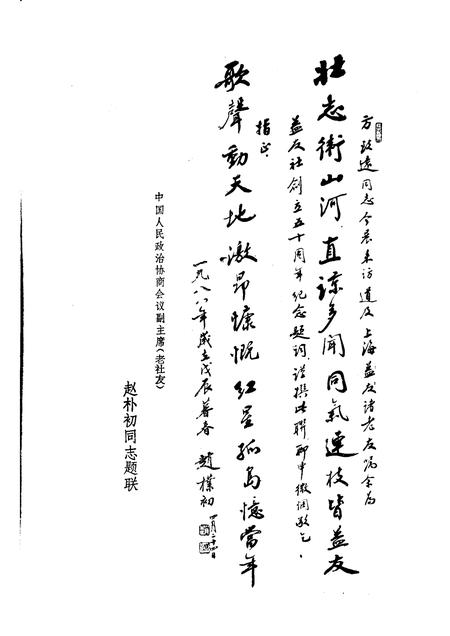 方同志今晨来访道及上海益友诸老友嘱余为
壮志衛山河直諒多聞同氣連枝皆益友
益友社创立五十周年纪念题词谨撰此联聊申微悃敬乞
指正
歌聲動天地激昂慷慨红星孤岛憶當年
一九八八年歲在戊辰暮春 趙樸初 四月二十四日
中国人民政治协商会议副主席(老社友)
赵朴初同志题联